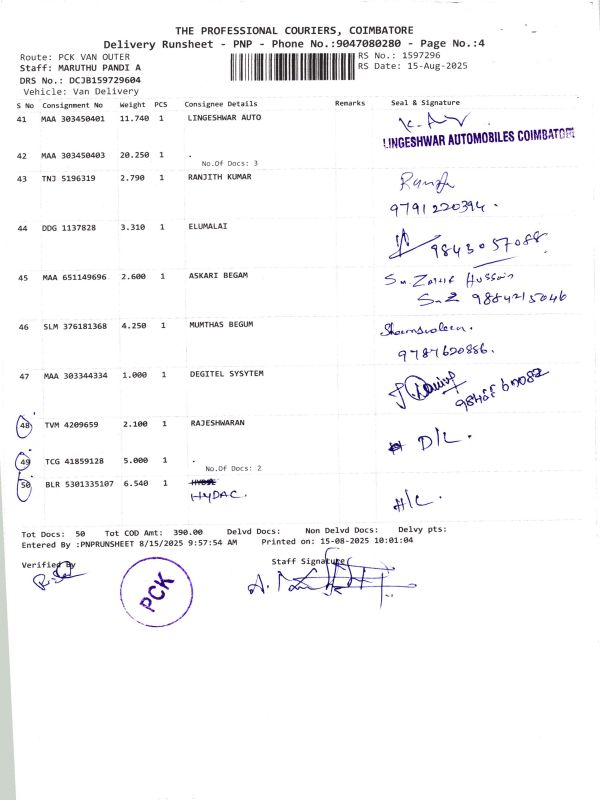 THE PROFESSIONAL COURIERS, COIMBATORE
Delivery Runsheet - PNP - Phone No.:9047080280 - Page No.:4
Route: PCK VAN OUTER
RS No.: 1597296
Staff: MARUTHU PANDI A
RS Date: 15-Aug-2025
DRS No.: DCJB159729604
Vehicle: Van Delivery
S No Consignment No Weight PCS Consignee Details Remarks Seal & Signature
41 MAA 303450401 11.740 1 LINGESHWAR AUTO
LINGESHWAR AUTOMOBILES COIMBATORE
42 MAA 303450403 20.250 1 .
No.Of Docs: 3
43 TNJ 5196319 2.790 1 RANJITH KUMAR
9791220394.
44 DDG 1137828 3.310 1 ELUMALAI
9843057088
45 MAA 651149696 2.600 1 ASKARI BEGAM
Hussain
9884215046
46 SLM 376181368 4.250 1 MUMTHAS BEGUM
9787620886.
47 MAA 303344334 1.000 1 DEGITEL SYSYTEM
48 TVM 4209659 2.100 1 RAJESHWARAN
D/L.
49 TCG 41859128 5.000 1 .
No.Of Docs: 2
50 BLR 5301335107 6.540 1
HYDAC.
H/L.
Tot Docs: 50 Tot COD Amt: 390.00 Delvd Docs: Non Delvd Docs: Delvy pts:
Entered By :PNPRUNSHEET 8/15/2025 9:57:54 AM Printed on: 15-08-2025 10:01:04
Verified By Staff Signature
PCK